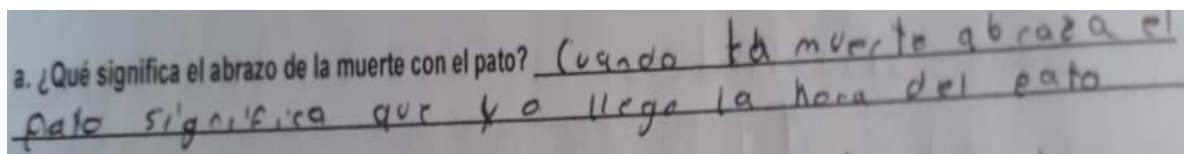 a. ¿Qué significa el abrazo de la muerte con el pato? Cuando la muerte abraza el
pato significa que ya llego la hora del pato